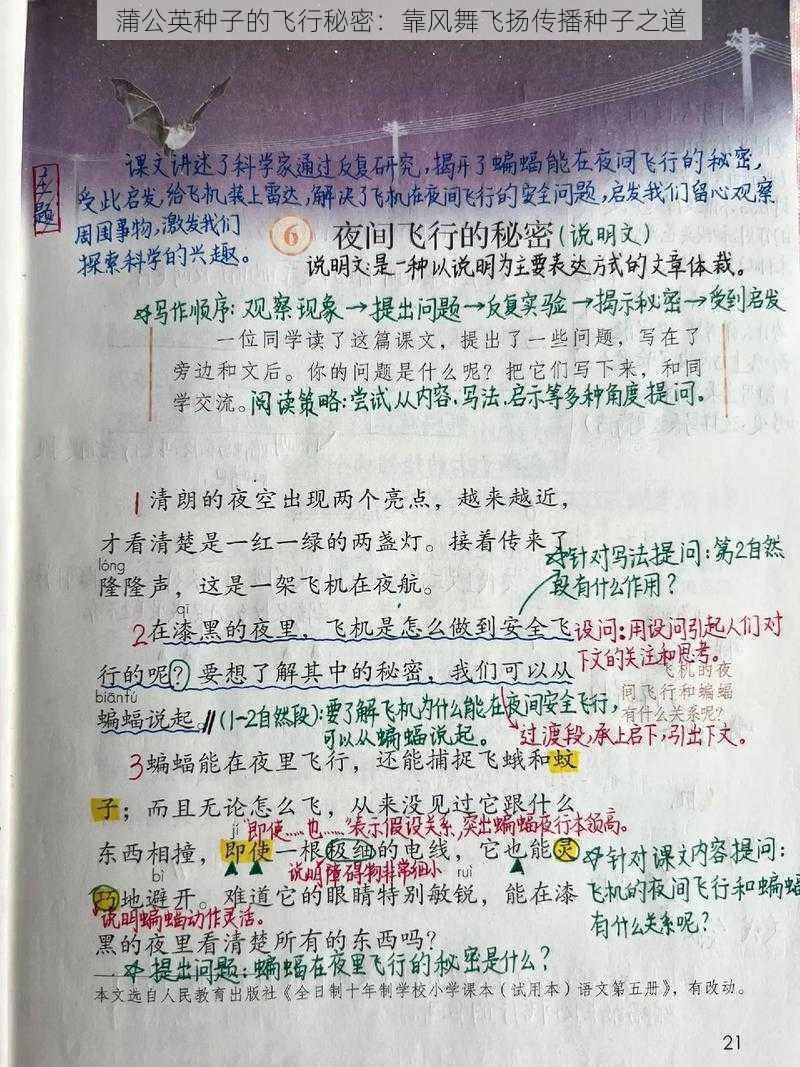 蒲公英种子的飞行秘密：靠风舞飞扬传播种子之道
主题
课文讲述了科学家通过反复研究,揭开了蝙蝠能在夜间飞行的秘密,
受此启发,给飞机装上雷达,解决了飞机在夜间飞行的安全问题,启发我们留心观察
周围事物,激发我们
探索科学的兴趣。
6 夜间飞行的秘密(说明文)
说明文:是一种以说明为主要表达方式的文章体裁。
写作顺序:观察现象→提出问题→反复实验→揭示秘密→受到启发
一位同学读了这篇课文，提出了一些问题，写在了
旁边和文后。你的问题是什么呢？把它们写下来，和同
学交流。阅读策略:尝试从内容.写法.启示等多种角度提问。
1清朗的夜空出现两个亮点，越来越近，
才看清楚是一红一绿的两盏灯。接着传来了
lóng
隆隆声，这是一架飞机在夜航。
针对写法提问:第2自然
段有什么作用?
qī
2在漆黑的夜里，飞机是怎么做到安全飞
行的呢？要想了解其中的秘密，我们可以从
biān fú
蝙蝠说起。
设问:用设问引起人们对
下文的关注和思考。
飞机的夜
间飞行和蝙蝠
有什么关系呢？
(1-2自然段):要了解飞机为什么能在夜间安全飞行,
可以从蝙蝠说起。
过渡段,承上启下,引出下文。
3蝙蝠能在夜里飞行，还能捕捉飞蛾和蚊
子；而且无论怎么飞，从来没见过它跟什么
jí
"即使……也……"表示假设关系,突出蝙蝠夜行本领高。
东西相撞，即使一根极细的电线，它也能灵
说明障碍物非常细小
bì
ruì
巧地避开。难道它的眼睛特别敏锐，能在漆
说明蝙蝠动作灵活。
黑的夜里看清楚所有的东西吗？
针对课文内容提问:
飞机的夜间飞行和蝙蝠
有什么关系呢?
提出问题:蝙蝠在夜里飞行的秘密是什么?
本文选自人民教育出版社《全日制十年制学校小学课本（试用本）语文第五册》，有改动。
21